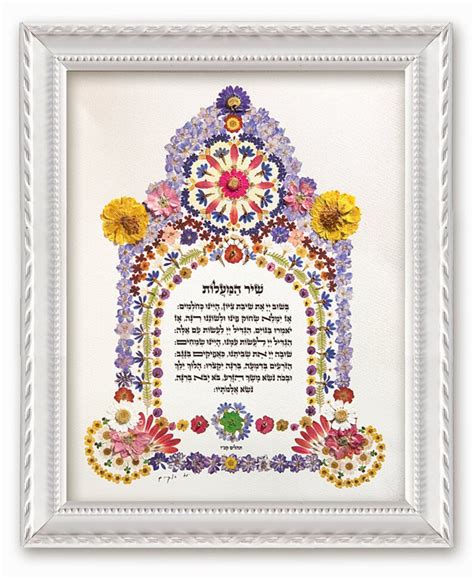 שיר המעלות
בשוב יי את שיבת ציון, היינו כחלמים:
אז ימלא שחוק פינו ולשוננו רנה, אז
יאמרו בגוים, הגדיל יי לעשות עם אלה:
הגדיל יי לעשות עמנו היינו שמחים:
שובה יי את שביתנו, כאפיקים בנגב:
הזרעים בדמעה, ברנה יקצרו: הלוך ילך
ובכה נשא משך הזרע, בא יבא ברנה,
נשא אלמותיו:
תהלים קכ"ו